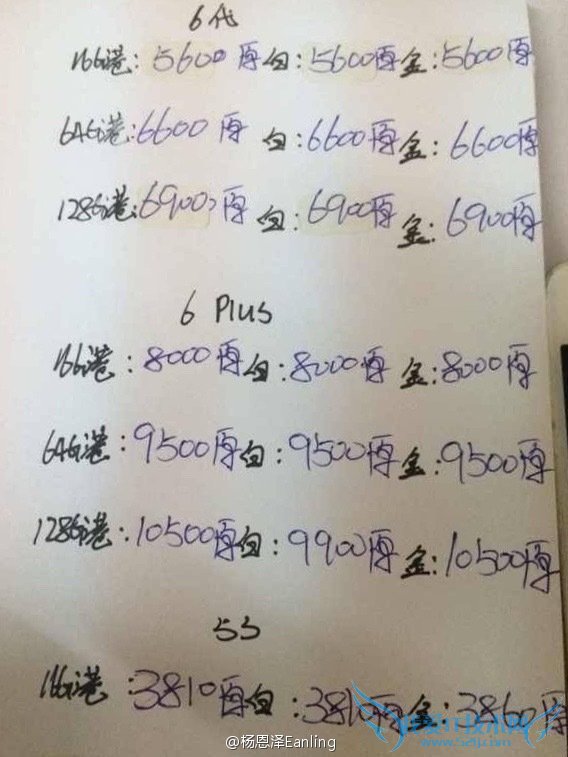 6代
16G港:5600原白:5600原金:5600原
64G港:6600原白:6600原金:6600原
128G港:6900原白:6900原金:6900原
6 Plus
16G港:8000原白:8000原金:8000原
64G港:9500原白:9500原金:9500原
128G港:10500原白:9900原金:10500原
5S
16G港:3810原白:3810原金:3860原
@杨恩泽Eanling